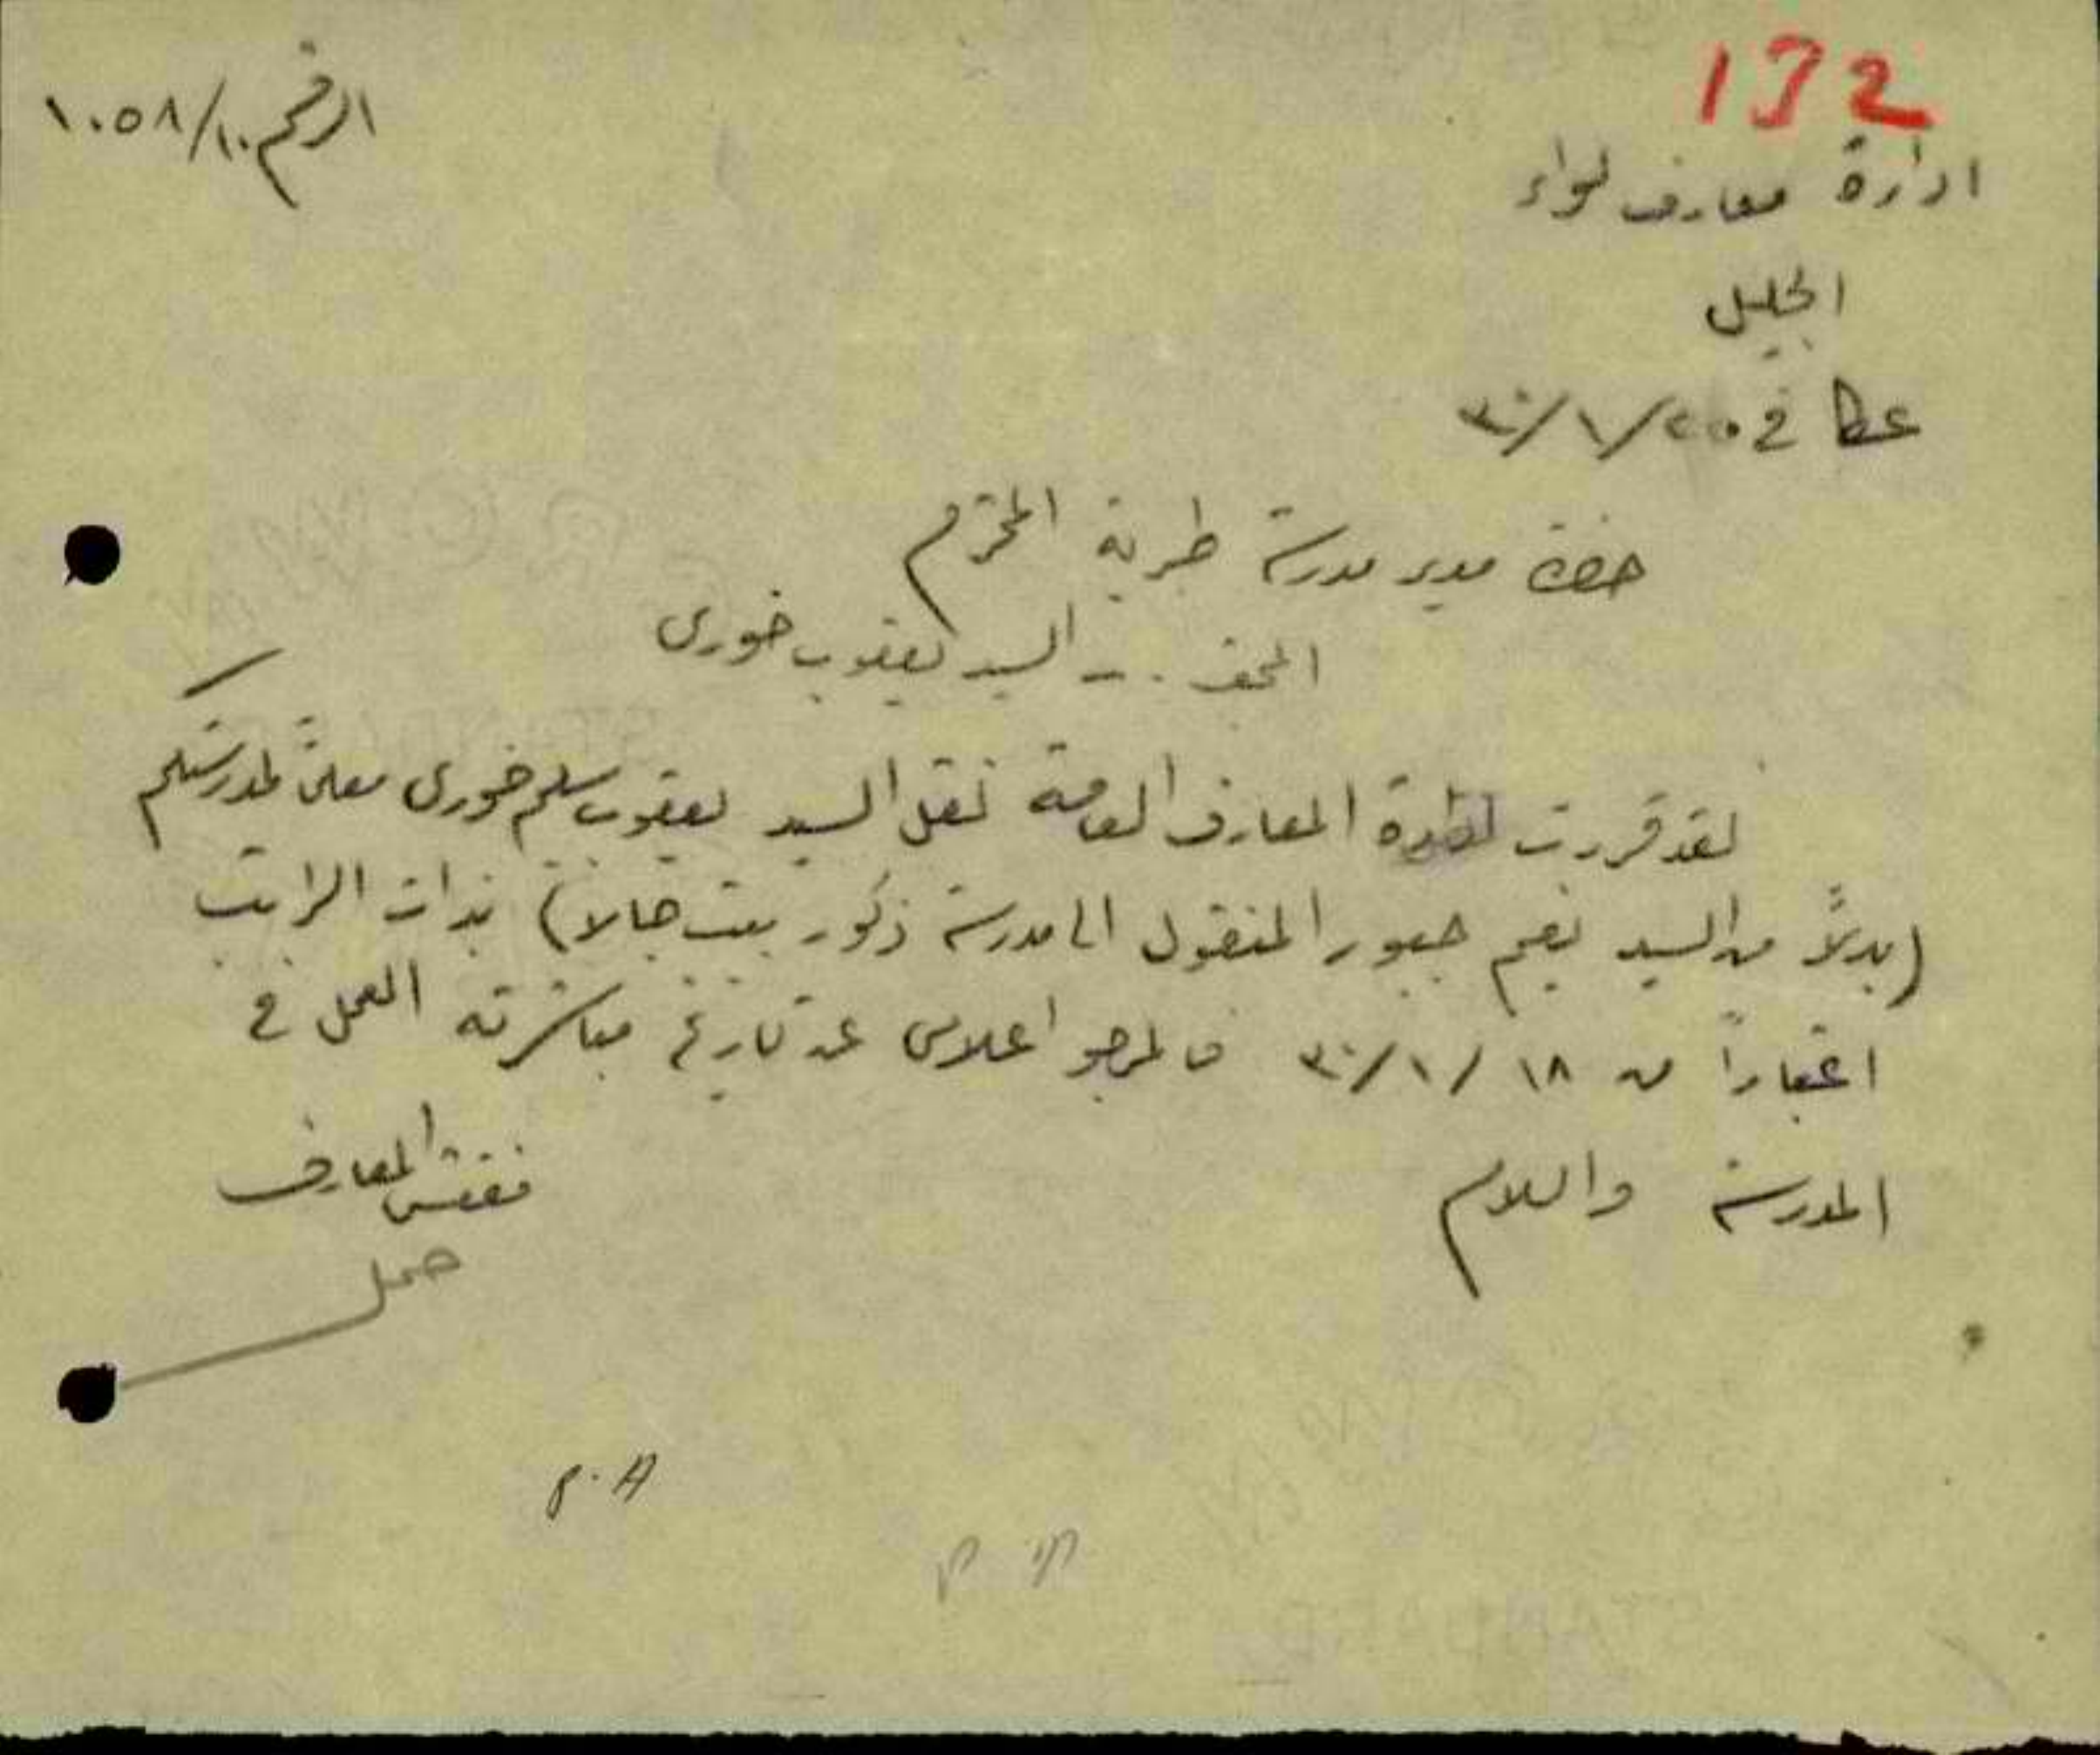 132
الرقم ١٠/ ١٠٥٨
ادارة معارف لواء
الجليل
عكا في ٢٥/ ١/ ٣٠
حضرة مدير مدرسة طبرية المحترم
السيد يعقوب خوري
لقد قررت ادارة المعارف العامة نقل السيد يعقوب سليم خوري معلماً لمدرستكم
(بدلاً من السيد نعيم جبور المنقول الى مدرسة ذكور بيت جالا) بذات الراتب
اعتباراً من ١٨/ ١/ ٣٠ فالمرجو اعلامي عن تاريخ مباشرته العمل في
المدرسة والسلام
مفتش المعارف